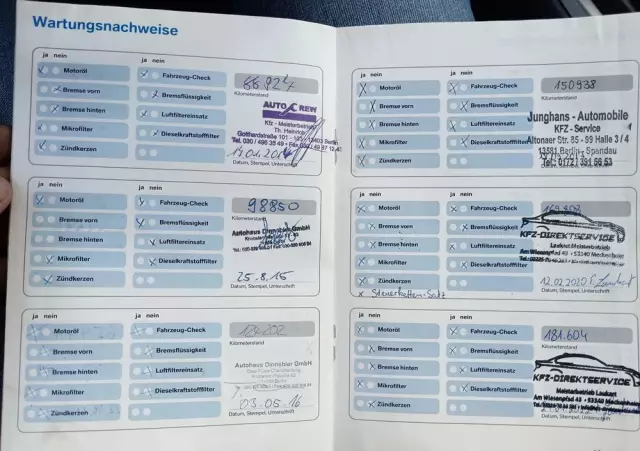 Wartungsnachweise
ja nein ja nein
Motoröl Fahrzeug-Check 66924
Bremse vorn Bremsflüssigkeit Kilometerstand
Bremse hinten Luftfiltereinsatz AUTO CREW
Mikrofilter Dieselkraftstofffilter Kfz - Meisterbetrieb
Zündkerzen Th. Heinrich
Datum, Stempel, Unterschrift
ja nein ja nein
Motoröl Fahrzeug-Check 98850
Bremse vorn Bremsflüssigkeit Kilometerstand
Bremse hinten Luftfiltereinsatz Autohaus Dienstbier GmbH
Mikrofilter Dieselkraftstofffilter
Zündkerzen 25.8.15
Datum, Stempel, Unterschrift
ja nein ja nein
Motoröl Fahrzeug-Check
Bremse vorn Bremsflüssigkeit Kilometerstand
Bremse hinten Luftfiltereinsatz Autohaus Dienstbier GmbH
Mikrofilter Dieselkraftstofffilter
Zündkerzen 03.05.16
Datum, Stempel, Unterschrift
ja nein ja nein
Motoröl Fahrzeug-Check 150938
Bremse vorn Bremsflüssigkeit Kilometerstand
Bremse hinten Luftfiltereinsatz Junghans - Automobile
Mikrofilter Dieselkraftstofffilter KFZ - Service
Zündkerzen Altonaer Str. 85 - 99 Halle 3 / 4
13581 Berlin - Spandau
Tel.: 0172 / 391 56 53
Datum, Stempel, Unterschrift
ja nein ja nein
Motoröl Fahrzeug-Check
Bremse vorn Bremsflüssigkeit
Bremse hinten Luftfiltereinsatz KFZ-DIREKTSERVICE
Mikrofilter Dieselkraftstofffilter Laukart Meisterbetrieb
Am Wiesenpfad 43 - 53340 Meckenheim
Zündkerzen 12.02.2020
x Steuerketten-Satz Datum, Stempel, Unterschrift
ja nein ja nein
Motoröl Fahrzeug-Check 181.604
Bremse vorn Bremsflüssigkeit Kilometerstand
Bremse hinten Luftfiltereinsatz KFZ-DIREKTSERVICE
Mikrofilter Dieselkraftstofffilter Meisterbetrieb Laukart
Am Wiesenpfad 43 - 53340 Meckenheim
Zündkerzen
Datum, Stempel, Unterschrift